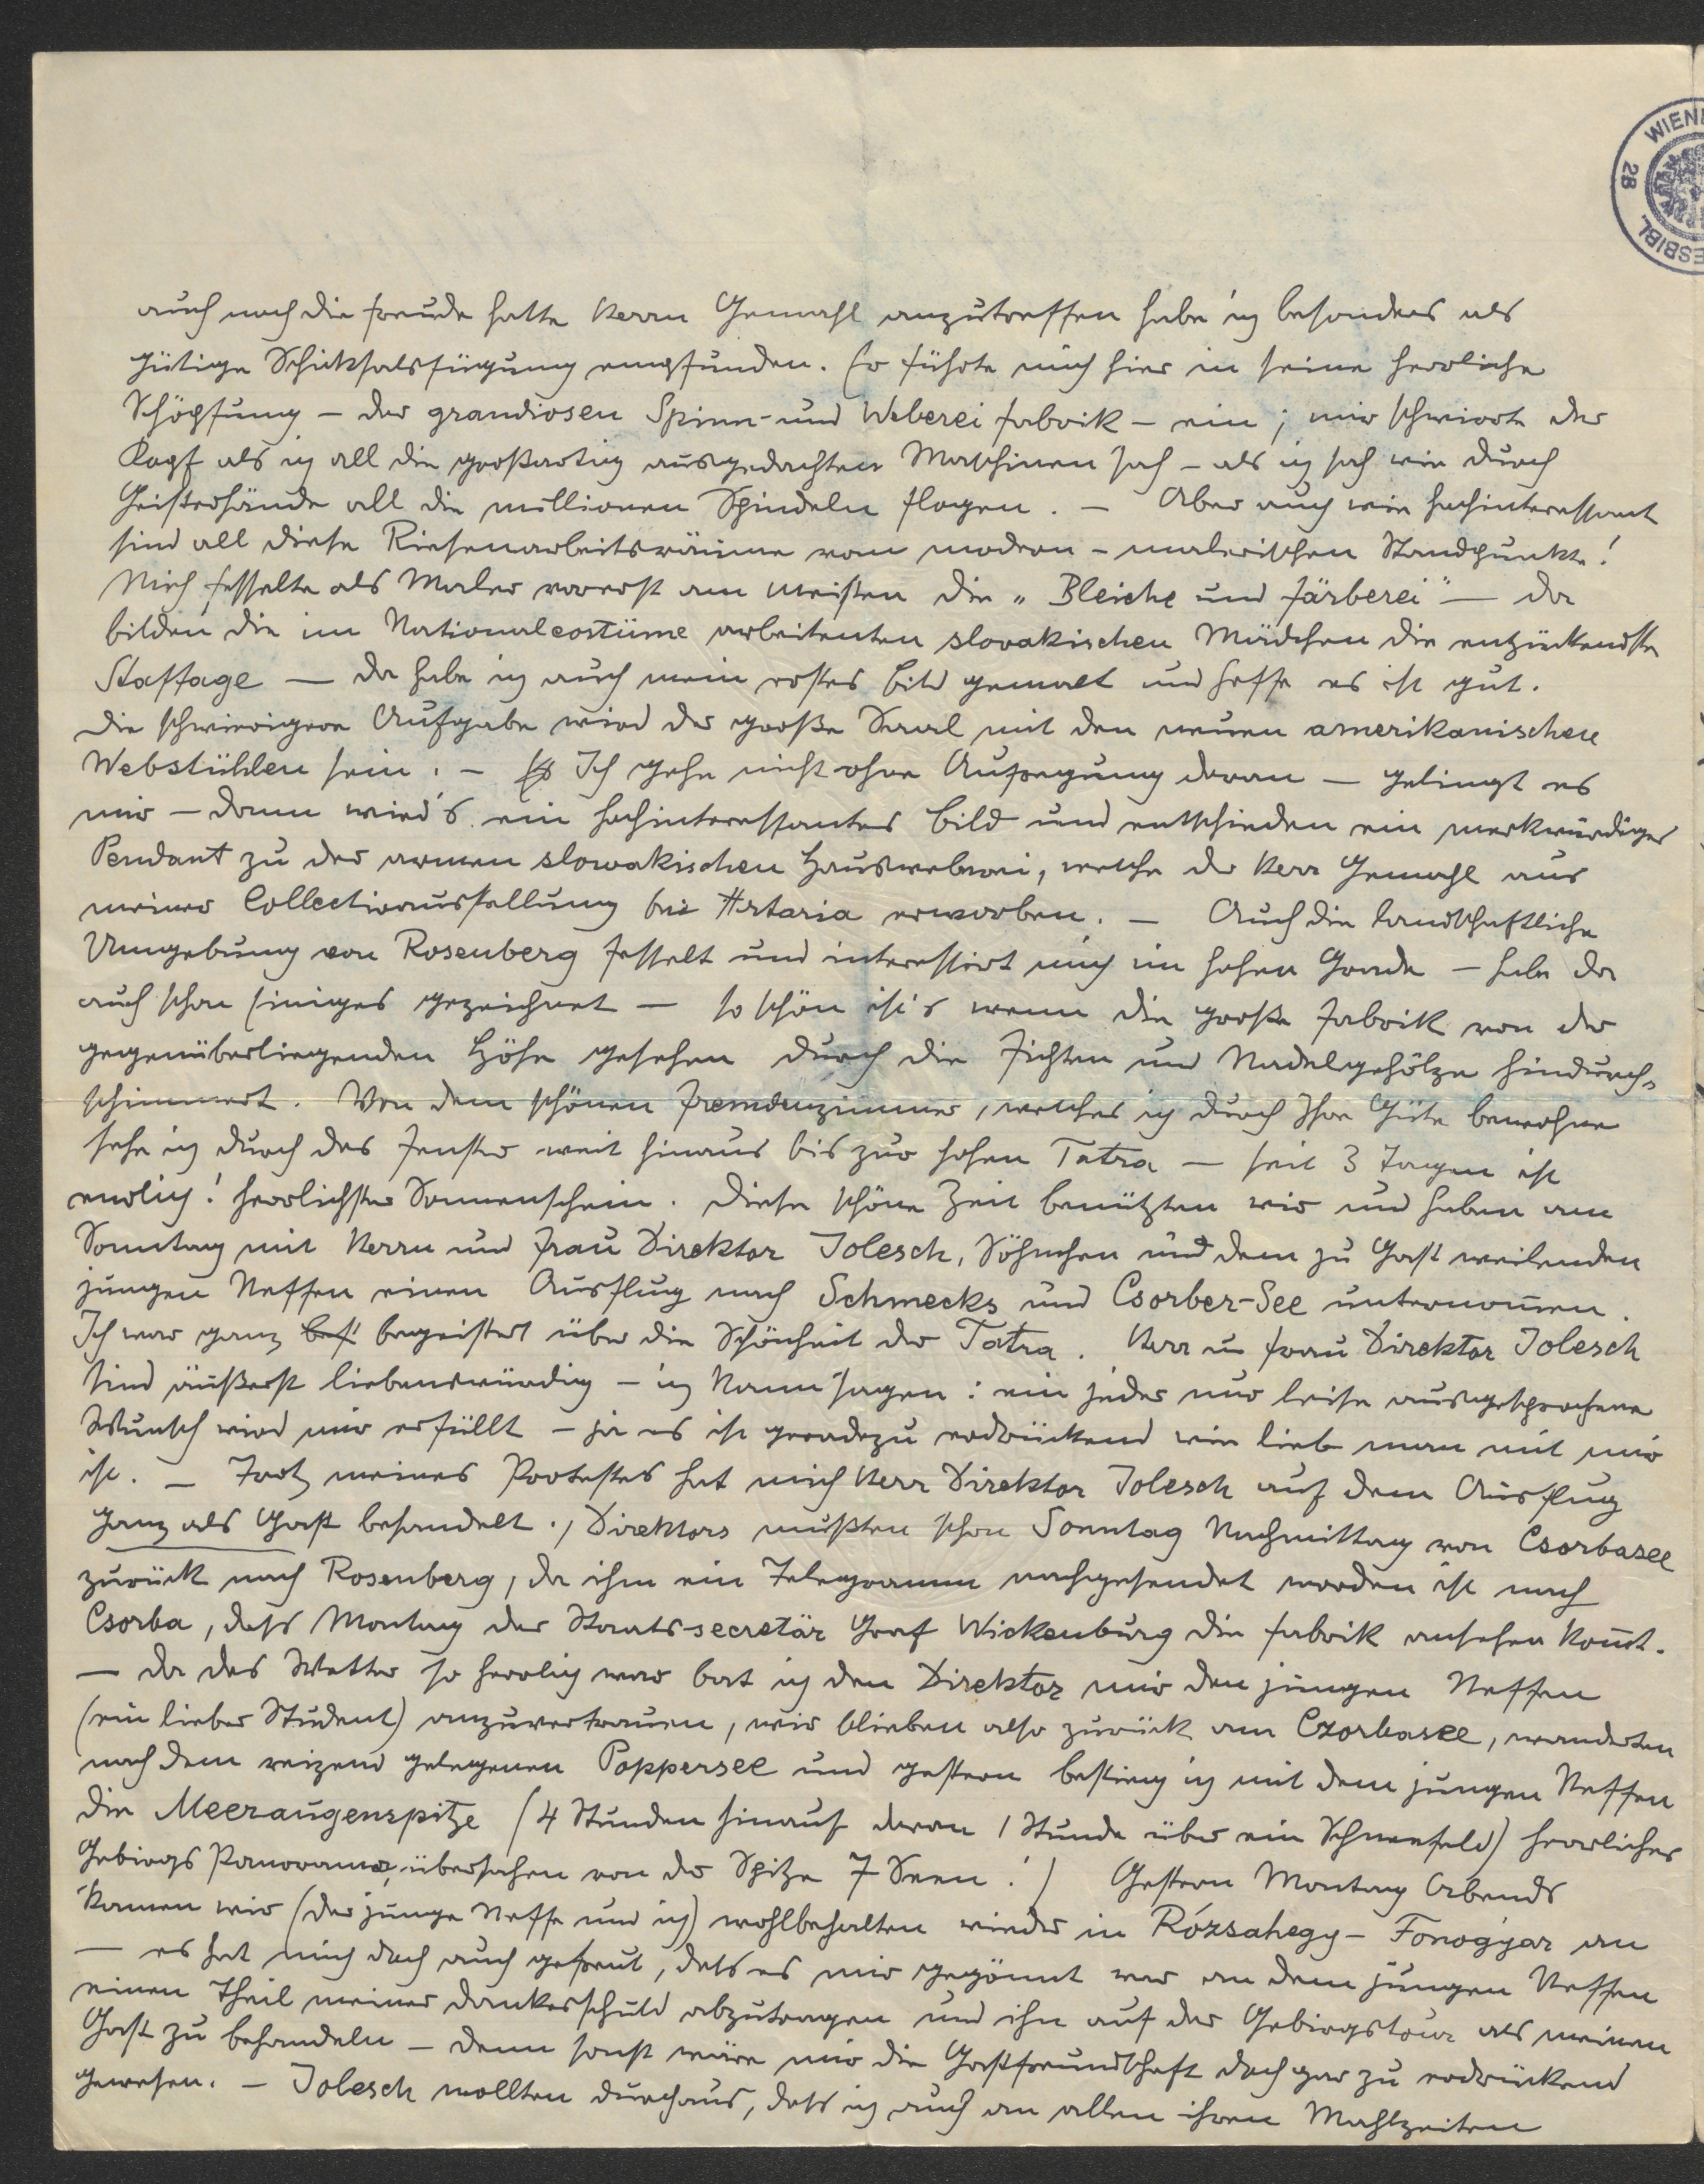 WIEN
28
ESBIBL
auch noch die Freude hatte Herrn Gemahl anzutreffen habe ich besonders als
gütige Schiksalsfügung empfunden. Er führte mich hier in seine herrliche
Schöpfung – der grandiosen Spinn- und Weberei Fabrik – ein; mir schwirrte der
Kopf als ich all die großartig ausgedachten Maschinen sah – als ich sah wie durch
Geisterhände all die millionen Spindeln flogen. – Aber auch wie hochinteressant
sind all diese Riesenarbeitsräume vom modern-malerischen Standpunkte!
Mich fesselte als Maler vorerst am meisten die „Bleiche und Färberei" — da
bilden die im Nationalcostüme arbeitenten slovakischen Mädchen die entzückendste
Staffage — da habe ich auch mein erstes Bild gemalt und hoffe es ist gut.
Die schwierigere Aufgabe wird der große Saal mit den neuen amerikanischen
Webstühlen sein. – Ich gehe nicht ohne Aufregung daran — gelingt es
mir – dann wird's ein hochinteressantes Bild und entschieden ein merkwürdiges
Pendant zu der armen slowakischen Hausweberei, welche der Herr Gemahl aus
meiner Collectivausstellung bei Artaria erworben. — Auch die landschaftliche
Umgebung von Rosenberg fesselt und interessirt mich im hohen Grade – habe da
auch schon Einiges gezeichnet — so schön ist's wenn die große Fabrik von der
gegenüberliegenden Höhe gesehen durch die Fichten und Nadelgehölze hindurch-
schimmert. Von dem schönen Fremdenzimmer, welches ich durch Ihre Güte bewohne
sehe ich durch das Fenster weit hinaus bis zur hohen Tatra — seit 3 Tagen ist
endlich! herrlichster Sonnenschein. Diese schöne Zeit benützten wir und haben am
Sonntag mit Herrn und Frau Direktor Jolesch, Söhnchen und dem zu Gast weilenden
jungen Neffen einen Ausflug nach Schmecks und Csorber-See unternom̄en.
Ich war ganz bes begeistert über die Schönheit der Tatra. Herr u Frau Direktor Jolesch
sind äußerst liebenswürdig – ich kann sagen: ein jeder nur leise ausgesprochene
Wunsch wird mir erfüllt – ja es ist geradezu erdrückend wie lieb man mit mir
ist. – Trotz meines Protestes hat mich Herr Direktor Jolesch auf dem Ausflug
ganz als Gast behandelt., Direktors mußten schon Sonntag Nachmittag von Csorbasee
zurück nach Rosenberg, da ihm ein Telegramm nachgesendet worden ist nach
Csorba, dass Montag der Staatssecretär Graf Wickenburg die Fabrik ansehen kom̄t.
— Da das Wetter so herrlich war bat ich den Direktor mir den jungen Neffen
(ein lieber Student) anzuvertrauen, wir blieben also zurück am Czorbasee, wanderten
nach dem reizend gelegenen Poppersee und gestern bestieg ich mit dem jungen Neffen
die Meeraugenspitze (4 Stunden hinauf davon 1 Stunde über ein Schneefeld) herrliches
Gebirgs Panorama, übersahen von der Spitze 7 Seen!) Gestern Montag Abends
kamen wir (der junge Neffe und ich) wohlbehalten wieder in Rózsahegy – Fonogyar an
— es hat mich doch auch gefreut, dass es mir gegönnt war an dem jungen Neffen
einen Theil meiner Dankesschuld abzutragen und ihn auf der Gebirgstour als meinen
Gast zu behandeln – denn sonst wäre mir die Gastfreundschaft doch gar zu erdrückend
gewesen. – Jolesch wollten durchaus, dass ich auch an allen ihren Mahlzeiten